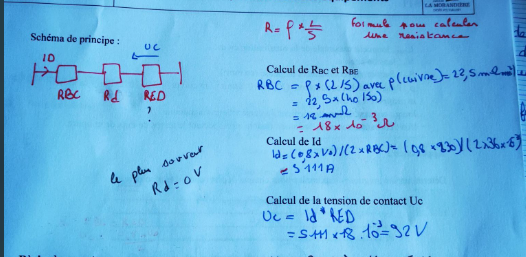 LA MORANDIÈRE
R = ρ × L/S Formule pour calculer
une resistance
Schéma de principe :
UC
ID
RBC Rd RED
?
Calcul de RBC et RBE
RBC = ρ × (L/S) avec ρ(cuivre) = 22,5 mΩ mm²
= 22,5 × (40/50)
= 18 mΩ
= 18 × 10⁻³ Ω
Calcul de Id
Id = (0,8 × V0) / (2 × RBC) = (0,8 × 230) / (2 × 36 × 10⁻³)
= 5111 A
le plus souvent
Rd = 0 V
Calcul de la tension de contact Uc
Uc = Id * RED
= 5111 × 18 . 10⁻³ = 92 V